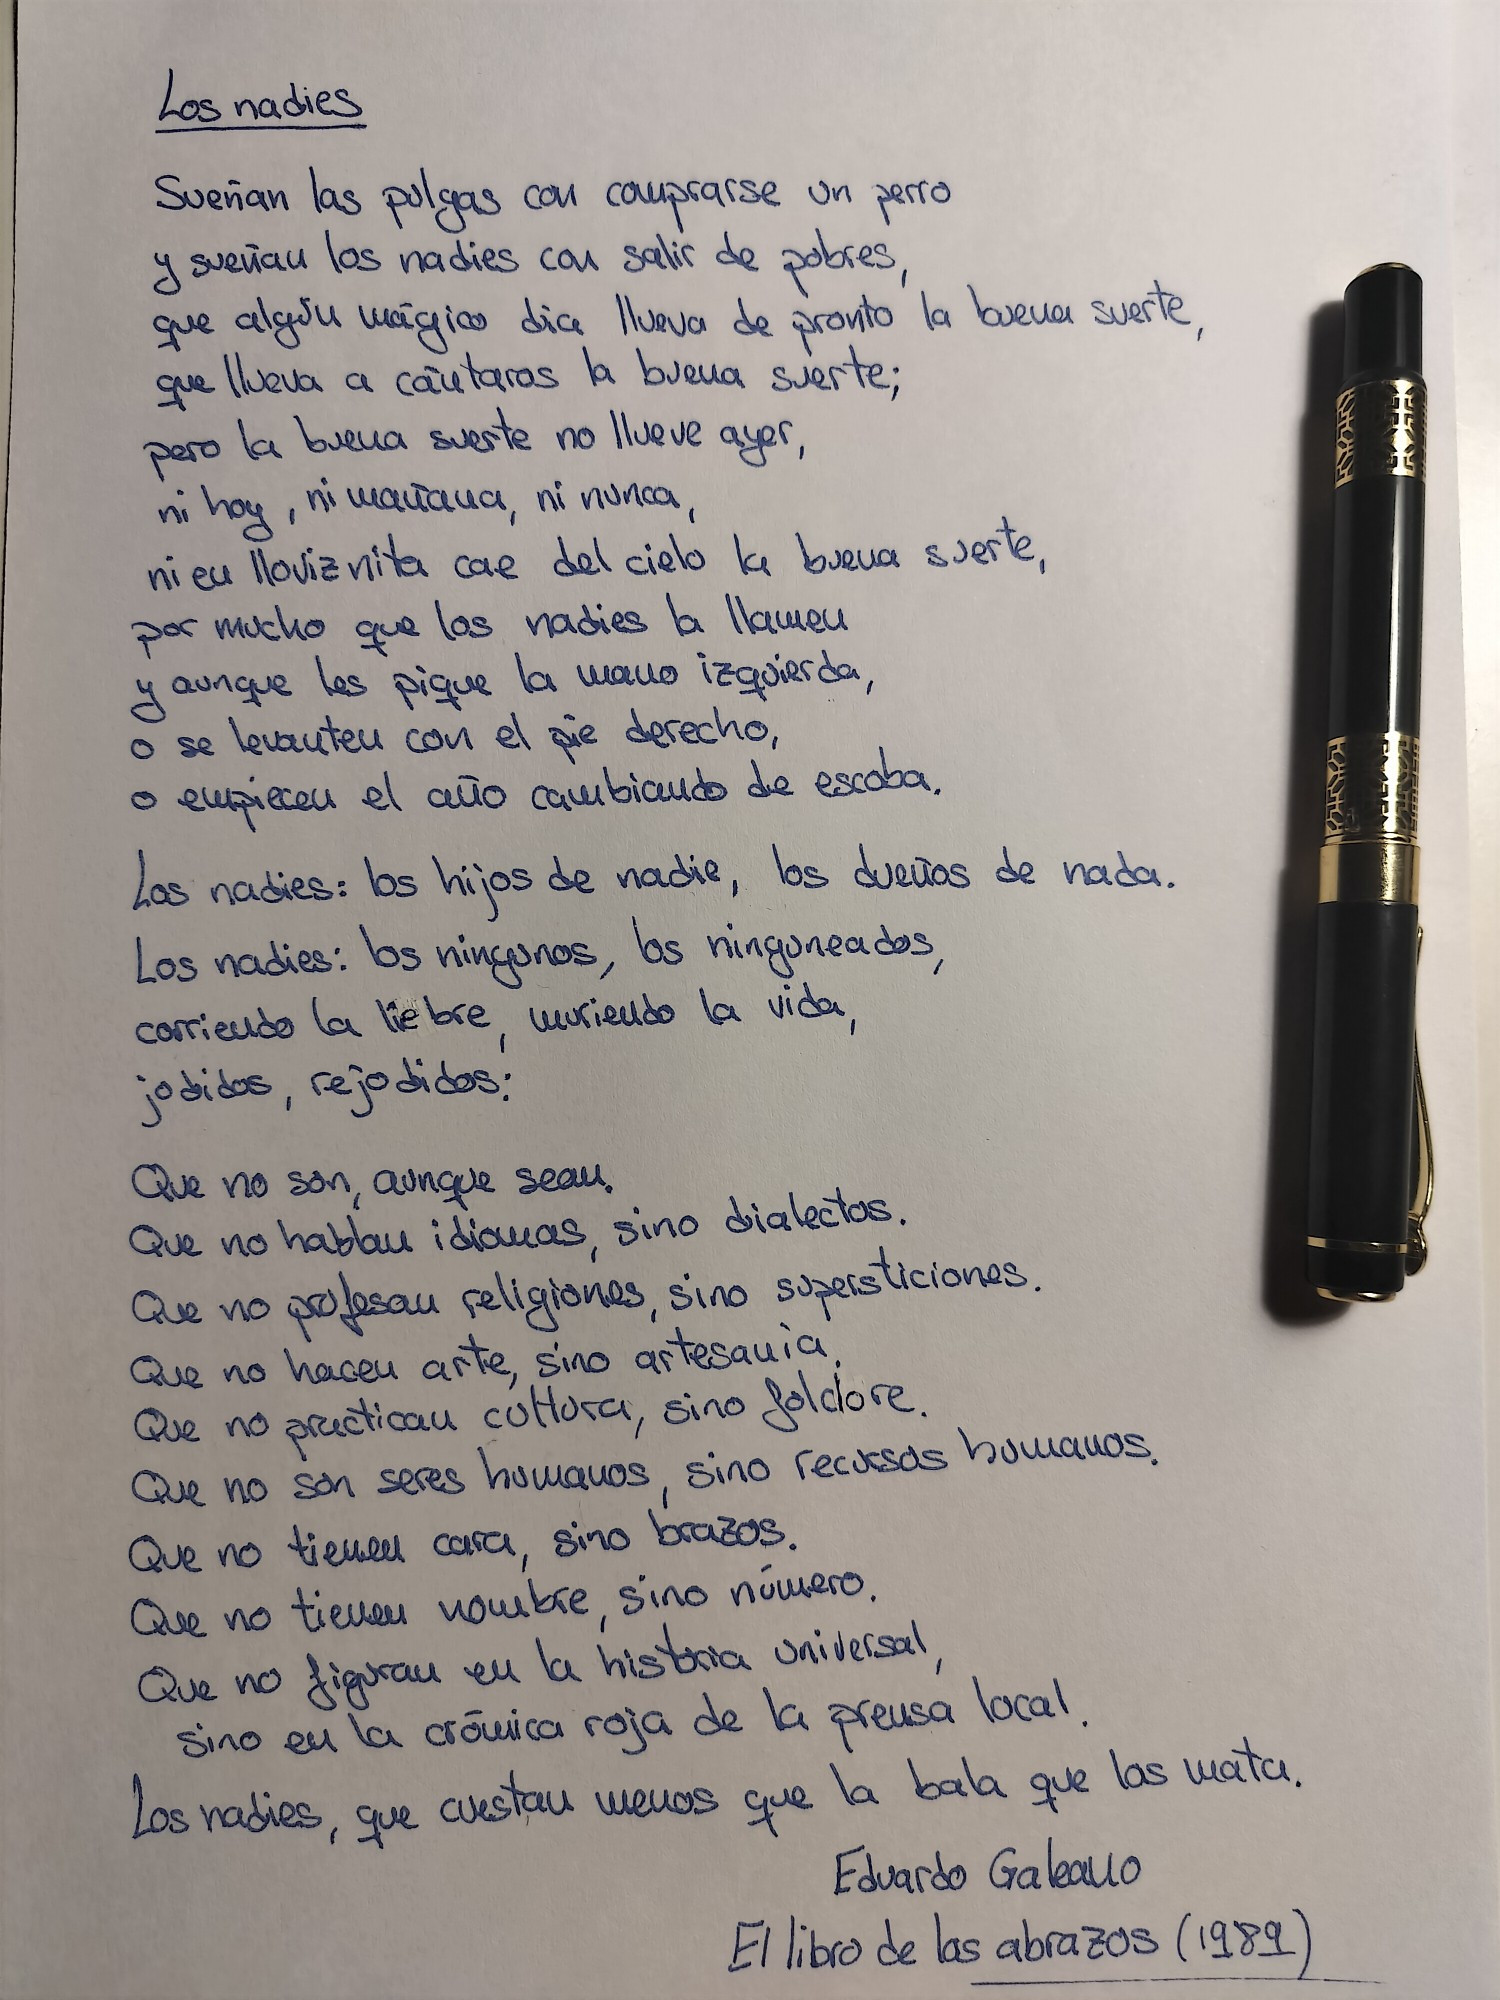 Los nadies
Sueñan las pulgas con comprarse un perro
y sueñan los nadies con salir de pobres,
que algún mágico dia llueva de pronto la buena suerte,
que llueva a cántaros la buena suerte;
pero la buena suerte no llueve ayer,
ni hoy, ni mañana, ni nunca,
ni en lloviznita cae del cielo la buena suerte,
por mucho que los nadies la llamen
y aunque les pique la mano izquierda,
o se levanten con el pie derecho,
o empiecen el año cambiando de escoba.
Los nadies: los hijos de nadie, los dueños de nada.
Los nadies: los ningunos, los ninguneados,
corriendo la liebre, muriendo la vida,
jodidos, rejodidos:
Que no son, aunque sean.
Que no hablan idiomas, sino dialectos.
Que no profesan religiones, sino supersticiones.
Que no hacen arte, sino artesanía.
Que no practican cultura, sino folclore.
Que no son seres humanos, sino recursos humanos.
Que no tienen cara, sino brazos.
Que no tienen nombre, sino número.
Que no figuran en la historia universal,
sino en la crónica roja de la prensa local.
Los nadies, que cuestan menos que la bala que los mata.
Eduardo Galeano
El libro de los abrazos (1989)